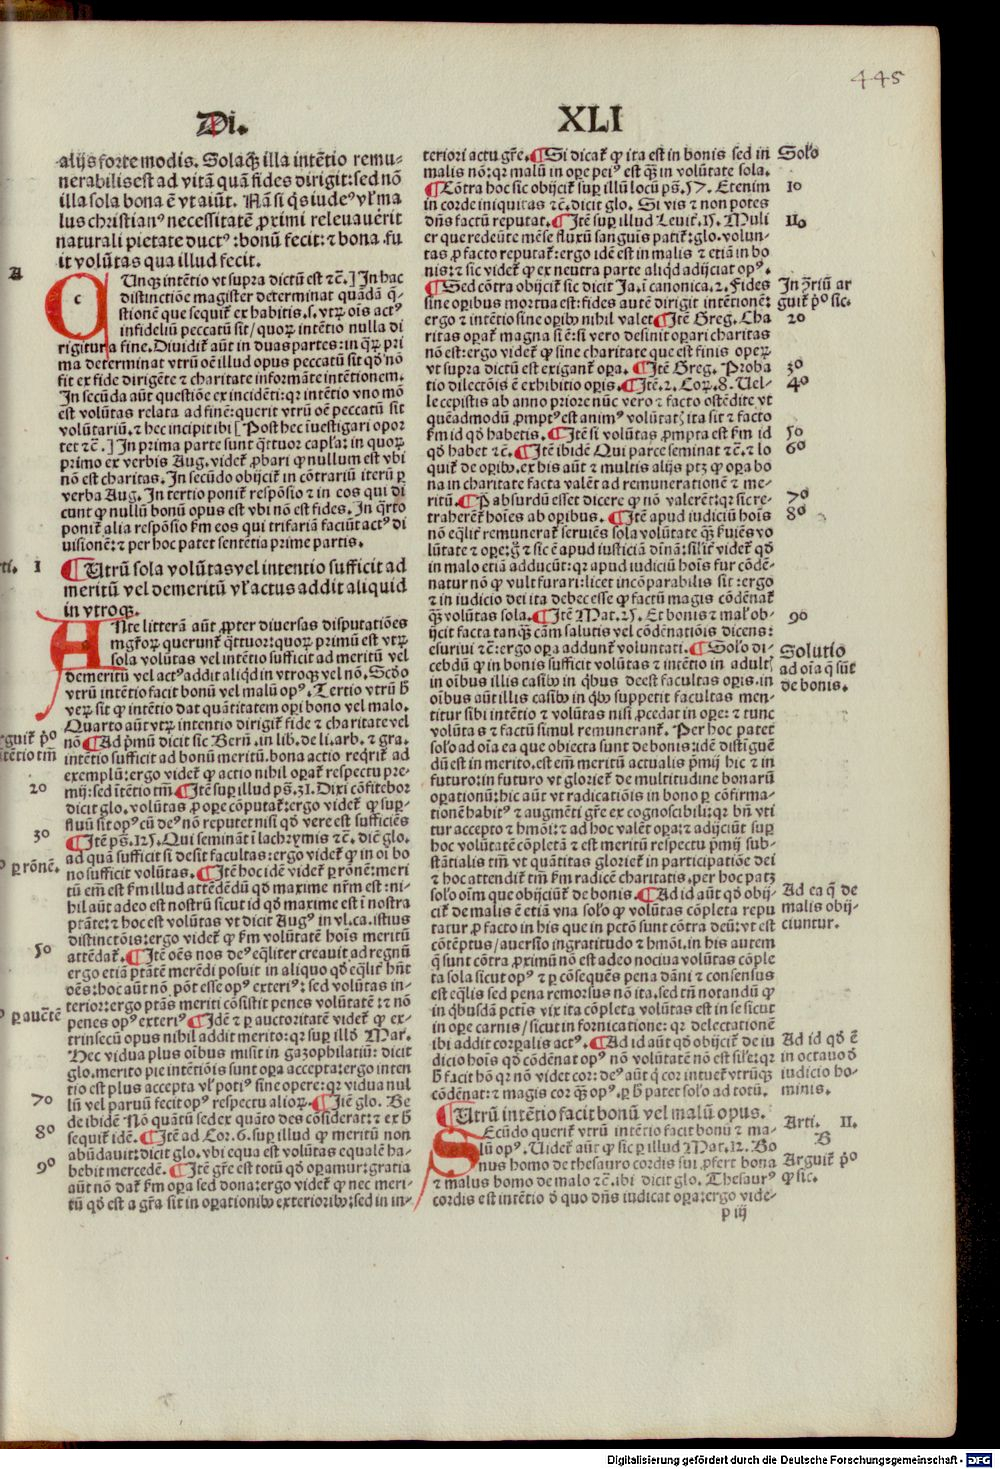 445
Di. XLI
alijs forte modis. Solaqꝫ illa intẽtio remu-
nerabilis est ad vitã quã fides dirigit: sed nõ
illa sola bona ẽ vt aiũt. Nã si q̃s iudeꝰ vƚ ma
lus christianꝰ necessitatẽ ꝓximi releuauerit
naturali pietate ductꝰ: bonũ fecit: ⁊ bona fu
it volũtas qua illud fecit.
A
QUnqꝫ intẽtio vt supra dictũ est ⁊c̃.] In hac
distinctiõe magister determinat quãdã q̃-
stionẽ que sequiť ex habitis .s. vtꝝ oĩs actꝰ
infidelium peccatũ sit/ quoꝝ intẽtio nulla di
rigitur a fine. Diuidiť aũt in duas partes: in q̃ꝝ pri
ma determinat vtrũ oẽ illud opus peccatũ sit qđ nõ
fit ex fide dirigẽte ⁊ charitate informãte intẽtionem.
In secũda aũt questiõe ex incidẽti: qꝛ intẽtio vno mõ
est volũtas relata ad finẽ: querit vtrũ oẽ peccatũ sit
voluntariũ. ⁊ hec incipit ibi [ Post hec īuestigari opor
tet ⁊c̃. ] In prima parte sunt q̃ttuor capƚa: in quoꝝ
primo ex verbis Aug. videť ꝓbari ꝙ nullum est vbi
nõ est charitas. In secũdo obijcit in cõtrariũ iterũ ꝑ
verba Aug. In tertio poniť respõsio ⁊ in eos qui di
cunt ꝙ nullũ bonũ opus est vbi nõ est fides. In q̃rto
poniť alia respõsio ẜm eos qui trifariã faciũt actꝰ di
uisionẽ: ⁊ per hoc patet sentẽtia prime partis.
Arti. I ¶ Utrũ sola volũtas vel intentio sufficit ad
meritũ vel demeritũ vƚ actus addit aliquid
in vtroqꝫ.
ANte litterã aũt ꝓpter diuersas disputatiões
mg̃roꝝ querunť q̃ttuor: quoꝝ primũ est vtꝝ
sola volũtas vel intẽtio sufficit ad meritũ vel
demeritũ vel actꝰ addit aliqđ in vtroqꝫ vel nõ. Scđo
vtrũ intẽtio facit bonũ vel malũ opꝰ. Tertio vtrũ ƀ
veꝝ sit ꝙ intẽtio dat quãtitatem oꝑi bono vel malo.
Quarto aũt vtꝝ intentio dirigiť fide ⁊ charitate vel
nõ ¶ Ad pͥmũ dicit sic Berñ. in lib. de li. arb. ⁊ gra.
intẽtio sufficit ad bonũ meritũ. bona actio reqͥriť ad
exemplũ: ergo videť ꝙ actio nihil oꝑať respectu pre-
mij: sed ĩtẽtio tm̃ ¶ Itẽ suꝑ illud ps̃. 31. Dixi cõfitebor
20
dicit glo. volũtas ꝓ oꝑe cõputať: ergo videť ꝙ suꝑ-
fluũ sit opꝰ cũ deꝰ nõ reputet nisi qđ vere est sufficiẽs
30
¶ Itẽ ps̃. 125. Qui seminãt ĩ lachrymis ⁊c̃. dicit glo.
ad quã sufficit si desit facultas: ergo videť ꝙ in oĩ bo
no sufficit volũtas. ¶ Itẽ hoc idẽ videť ꝑ rõnẽ: meri
tũ em̃ est ẜm illud attẽdẽdũ qđ maxime nr̃m est: ni-
hil aũt adeo est nostrũ sicut id qđ maxime est ĩ nostra
ptãte: ⁊ hoc est volũtas vt dicit Augꝰ in vl. ca. istius
distinctõis: ergo videť ꝙ ẜm volũtatẽ hoĩs meritũ
50
attẽdať. ¶ Itẽ oẽs nos deꝰ eq̃liter creauit ad regnũ
ergo etiã ptãtẽ merẽdi posuit in aliquo qđ eq̃liť hñt
oẽs: hoc aũt nõ põt esse opꝰ exteriꝰ: sed volũtas in-
terior: ergo ptãs meriti cõsistit penes volũtatẽ: ⁊ nõ
penes opꝰ exteriꝰ ¶ Idẽ ⁊ ꝑ auctoritatẽ videť ꝙ ex-
trinsecũ opus nihil addit merito: qꝛ suꝑ illđ Mar.
Hec vidua plus oĩbus misit in gazophilatiũ: dicit
glo. merito pie intẽtiõis sunt oꝑa accepta: ergo inten
tio est plus accepta vƚ potiꝰ sine opere: qꝛ vidua nul
70
lũ vel paruũ fecit opꝰ respectu alioꝝ. ¶ Itẽ glo. Be
de ibidẽ Nõ quãtũ sed ex quãto des cõsiderat: ⁊ ex ƀ
80
sequiť idẽ. ¶ Itẽ ad Cor. 6. suꝑ illud ꝙ meritũ non
abũdauit: dicit glo. vbi equa est volũtas equalẽ ha-
90
bebit mercedẽ. ¶ Itẽ gr̃e est totũ qđ oꝑamur: gratia
aũt nõ dať ẜm oꝑa sed dona: ergo videť ꝙ nec meri-
tũ qđ est a gr̃a sit in oꝑationibꝰ exterioribꝰ: sed in in-
teriori actu gr̃e. ¶ Si dicať ꝙ ita est in bonis sed in
malis nõ: qꝛ malũ in oꝑe peiꝰ est qꝫ in volũtate sola.
Solo
10
¶ Cõtra hoc sic obijciť suꝑ illũ locũ ps̃. 57. Etenim
in corde iniquitas ⁊c̃. dicit glo. Si vis ⁊ non potes
dñs factũ reputat. ¶ Itẽ suꝑ illud Leuit. 15. Muli
er que redeũte mẽse fluxũ sanguĩs patiť: glo. volun-
tas ꝓ facto reputať: ergo idẽ est in malis ⁊ etiã in bo
nis: ⁊ sic videť ꝙ ex neutra parte aliqđ adijciat opꝰ.
¶ Sed cõtra obijciť sic dicit Ja. ĩ canonica. 2. Fides
sine oꝑibus mortua est: fides autẽ dirigit intẽtionẽ:
ergo ⁊ intẽtio sine oꝑibꝰ nihil valet ¶ Itẽ Greg. Cha
20
ritas oꝑať magna si ẽ: si vero desinit oꝑari charitas
nõ est: ergo videť ꝙ sine charitate que est finis opeꝝ
vt supra dictũ est exiganť oꝑa. ¶ Itẽ Greg. Proba
30
tio dilectõis ẽ exhibitio oꝑis. ¶ Itẽ. 2. Coꝝ. 8. Uel-
40
le cepistis ab anno priore nũc vero ⁊ facto ostẽdite vt
quẽadmodũ ꝓmptꝰ est animꝰ volũtatꝭ ita sit ⁊ facto
ẜm id qđ habetis. ¶ Itẽ si volũtas ꝓmpta est ẜm id
50
qđ habet ⁊c̃. ¶ Itẽ ibidẽ Qui parce seminat ⁊c̃. ⁊ lo
60
quiť de oꝑibꝰ. ex his aũt ⁊ multis alijs ptꝫ ꝙ oꝑa bo
na in charitate facta valẽt ad remunerationẽ ⁊ me-
ritũ. ¶ P̃ absurdũ esset dicere ꝙ nõ valerẽt: qꝛ sic re-
70
traherẽť hoĩes ab oꝑibus. ¶ Itẽ apud iudiciũ hoĩs
80
nõ eq̃liť remunerať seruiẽs sola volũtate qꝫ ẜuiẽs vo
lũtate ⁊ oꝑe: g̃ ⁊ sic ẽ apud iusticiã diuinã: siľiť videť qđ
in malo etiã adducũt: qꝛ apud iudiciũ hoĩs fur cõdẽ-
natur nõ ꝙ vult furari: licet incõparabilis sit: ergo
⁊ in iudicio dei ita debec esse ꝙ factũ magis cõdẽnať
qꝫ volũtas sola. ¶ Itẽ Mat. 25. Et bonis ⁊ maľ ob-
90
ijcit facta tanqꝫ cãm salutis vel cõdẽnatiõis dicens:
esuriui ⁊c̃: ergo oꝑa addunť voluntati. ¶ Solo di-
Solutio
ad oĩa q̃ sũt
de bonis.
cẽdũ ꝙ in bonis sufficit volũtas ⁊ intẽtio in adultꝭ
in oĩbus illis casibꝰ in qͥbus deest facultas oꝑis. in
oĩbus aũt illis casibꝰ in qͥbꝰ suppetit facultas men-
titur sibi intẽtio ⁊ volũtas nisi ꝓcedat in oꝑe: ⁊ tunc
volũtas ⁊ factũ simul remuneranť. Per hoc patet
soľo ad oĩa ea que obiecta sunt de bonis: idẽ distĩguẽ
dũ est in merito. est em̃ meritũ actualis pͥmij hic ⁊ in
futuro: in futuro vt glorieť de multitudine bonarũ
oꝑationũ: hic aũt vt radicatiõis in bono ꝑ cõfirma-
tionẽ habitꝰ ⁊ augmẽti gr̃e ex cognoscibili: qꝛ bñ vti
tur accepto ⁊ hmõi: ⁊ ad hoc valẽt oꝑa: ⁊ adijciũt suꝑ
hoc volũtatẽ cõpletã ⁊ est meritũ respectu pͥmij sub-
stãtialis tm̃ vt quãtitas glorieť in participatiõe dei
⁊ hoc attendiť tm̃ ẜm radicẽ charitatis. per hoc patꝫ
soľo oĩm que obijciũť de bonis. ¶ Ad id aũt qđ obij-
Ad ea q̃ de
malis obij-
ciuntur.
ciť de malis ẽ etiã vna soľo ꝙ volũtas cõpleta repu
tatur ꝓ facto in his que in pctõ sunt cõtra deũ: vt est
cõtẽptus/ auersio ingratitudo ⁊ hmõi. in his autem
q̃ sunt cõtra ꝓximũ nõ est adeo nociua volũtas cõple
ta sola sicut opꝰ ⁊ ꝑ cõsequẽs pena dãni ⁊ consensus
est eq̃lis sed pena remorsus nõ ita. sed tñ notandũ ꝙ
in qͥbusdã pctĩs vix ita cõpleta volũtas est in se sicut
in oꝑe carnis/ sicut in fornicatione: qꝛ delectationẽ
ibi addit corꝑalis actꝰ. ¶ Ad id aũt qđ obijciť de iu
Ad id qđ ẽ
in octauo đ
iudicio ho-
minis.
dicio hoĩs qđ cõdẽnat opꝰ nõ volũtatẽ nõ est siľe: qꝛ
ƀ facit hõ qꝛ nõ videt cor: deꝰ aũt q̃ cor intueť vtrũqꝫ
cõdẽnat: ⁊ magis cor qꝫ opꝰ. ꝑ ƀ patet soľo ad totũ.
¶ Utrũ intẽtio facit bonũ vel malũ opus.
Arti. II.
B
SEcũdo queriť vtrũ intẽtio facit bonũ ⁊ ma-
lũ opꝰ. Uideť aũt ꝙ sic ꝑ illud Mat. 12. Bo
nus homo de thesauro cordis sui ꝓfert bona
Arguiť pͦ
ꝙ sic.
⁊ malus homo de malo ⁊c̃. ibi dicit glo. Thesaurꝰ
cordis est intẽtio đ quo dñs iudicat oꝑa: ergo vide-
p iij
Digitalisierung gefördert durch die Deutsche Forschungsgemeinschaft - DFG